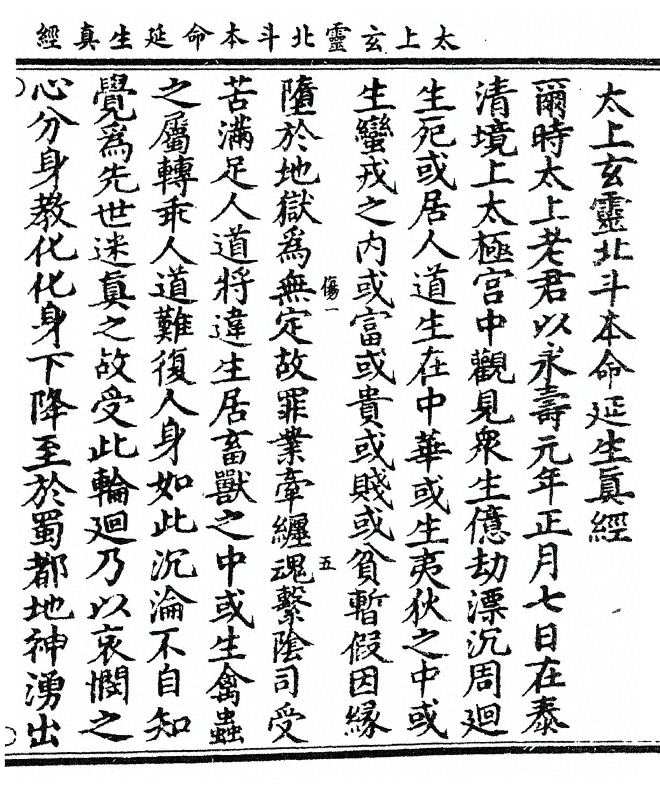 太上玄靈北斗本命延生真經
太上玄靈北斗本命延生眞經
爾時太上老君以永壽元年正月七日在泰
清境上太極宮中觀見衆生億劫漂沉周廻
生死或居人道生在中華或生夷狄之中或
生蠻戎之内或富或貴或賤或貧暫假因緣
墮於地獄爲無定故罪業牽纏魂繫陰司受
傷一
五
苦滿足人道將違生居畜獸之中或生禽蟲
之屬轉乖人道難復人身如此沉淪不自知
覺爲先世迷眞之故受此輪廻乃以哀憫之
心分身教化化身下降至於蜀都地神湧出